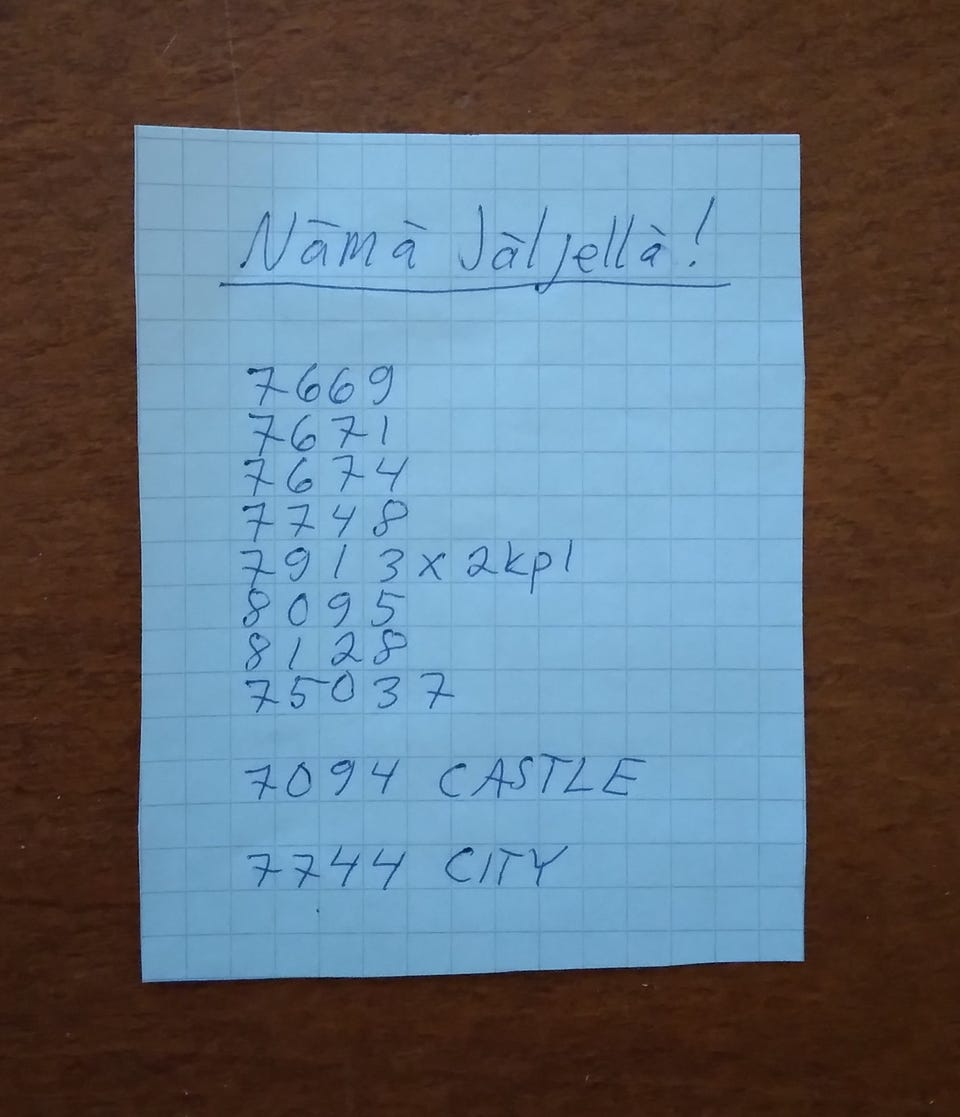 Nämä Jäljellä!
7669
7671
7674
7748
7913 x 2kpl
8095
8128
75037
7094 CASTLE
7744 CITY